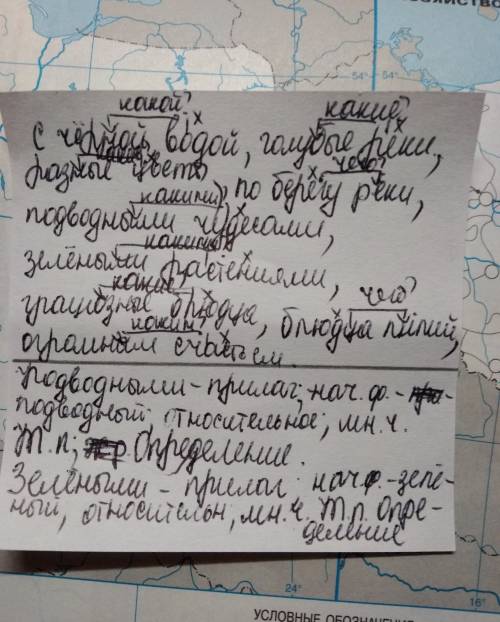 ХОЗЯЙСТВО
54° 54°
какой? какие?
с чёрной водой, голубые реки,
какие? чего?
разные цветы по берегу реки,
какими?
подводными чудесами,
какими?
зелёными растениями,
какие? чего?
грациозные блюдца, блюдца лилий,
каким?
огромным счастьем.
Подводными - прилаг; нач. ф. -
подводный относительное, мн. ч.
Т. п; Определение.
Зелёными - прилаг нач. ф. - зелё-
ный, относительн, мн. ч. Т. п. Опре-
деление
24° 16°
УСЛОВНЫЕ ОБОЗНАЧЕНИЯ